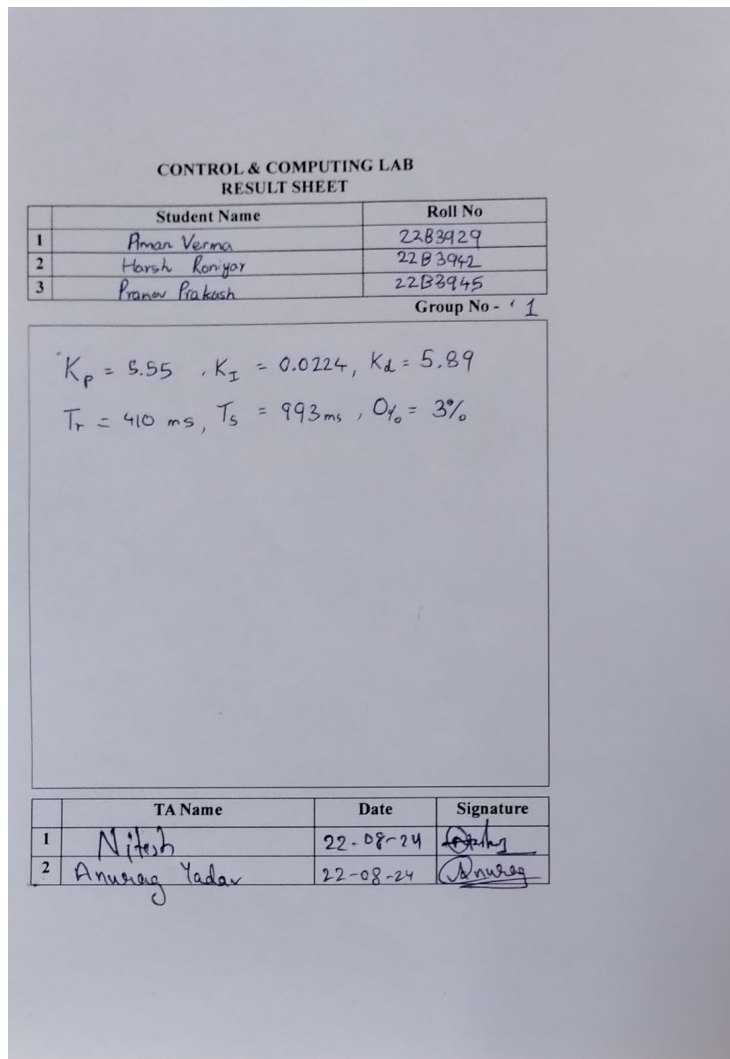 CONTROL & COMPUTING LAB
RESULT SHEET
Student Name Roll No
1 Aman Verma 22B3929
2 Harsh Roniyar 22B3942
3 Pranav Prakash 22B3945
Group No - 1
Kp = 5.55 , KI = 0.0224, Kd = 5.89
Tr = 410 ms, Ts = 993 ms , O% = 3%
TA Name Date Signature
1 Nitesh 22-08-24
2 Anurag Yadav 22-08-24 Anurag